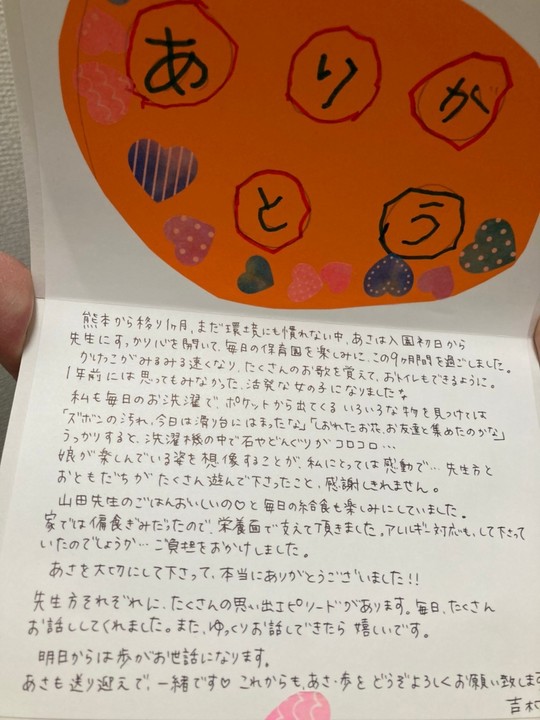 ありが
とう
熊本から移り1ヶ月、まだ環境にも慣れない中、あさは入園初日から
先生にすっかり心を開いて、毎日の保育園を楽しみに、この9ヶ月間を過ごしました。
かけっこがみるみる速くなり、たくさんのお歌を覚えて、おトイレもできるように。
1年前には思ってもみなかった、活発な女の子になりました
私も毎日のお洗濯で、ポケットから出てくるいろいろな物を見つけては
「ズボンの汚れ、今日は滑り台にはまったな」「しおれたお花、お友達と集めたのかな」
うっかりすると、洗濯機の中で石やどんぐりがコロコロ…
娘が楽しんでいる姿を想像することが、私にとっては感動で…先生方と
おともだちがたくさん遊んで下さったこと、感謝しきれません。
山田先生のごはんおいしいの♡と毎日の給食も楽しみにしていました。
家では偏食ぎみだったので、栄養面で支えて頂きました。アレルギー対応も、して下さって
いたのでしょうか…ご負担をおかけしました。
あさを大切にして下さって、本当にありがとうございました!!
先生方それぞれに、たくさんの思い出エピソードがあります。毎日、たくさん
お話ししてくれました。また、ゆっくりお話しできたら嬉しいです。
明日からは歩がお世話になります。
あさも送り迎えで、一緒です♡これからも、あさ・歩をどうぞよろしくお願い致します